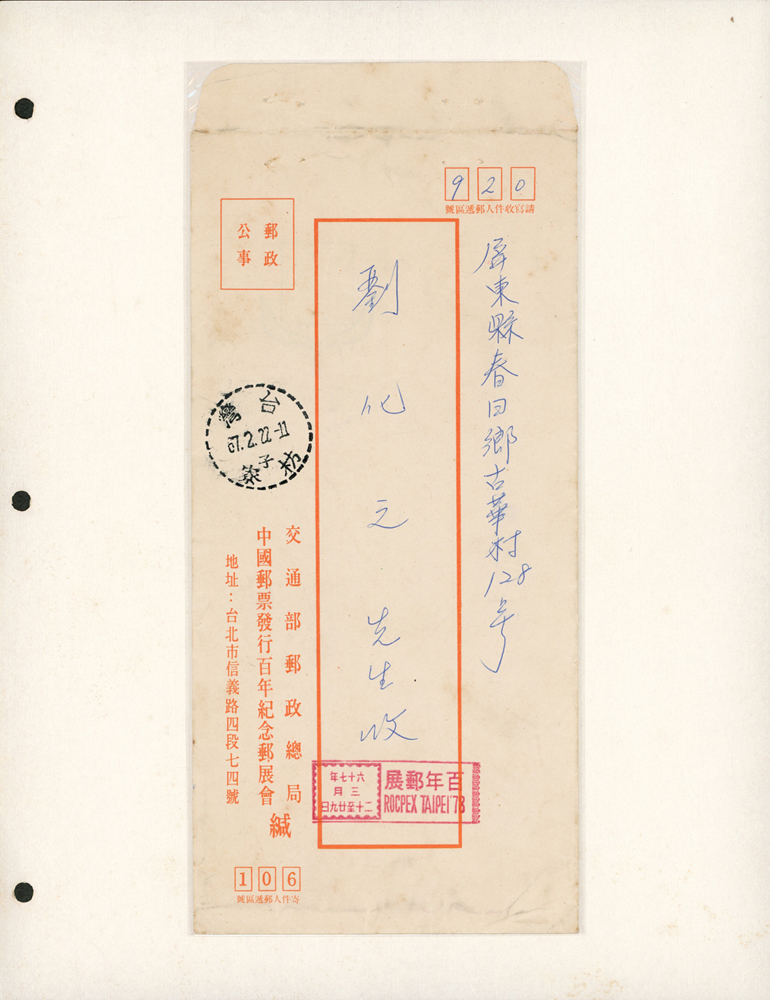 920
請寫收件人郵遞區號
屏東縣春日鄉古華村128号
劉化之先生收
郵政
公事
台灣
67.2.22-11
枋寮
子
交通部郵政總局
中國郵票發行百年紀念郵展會 緘
地址：台北市信義路四段七四號
百年郵展
ROCPEX TAIPEI'78
六十七年
三月
二十至廿九日
106
寄件人郵遞區號